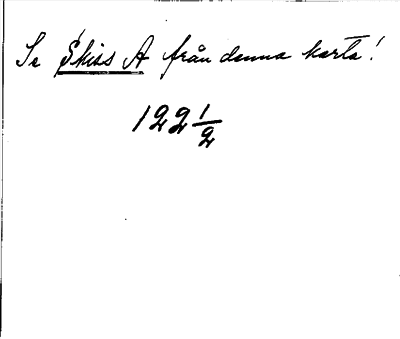 Se Skiss A från denna karta!
122 1/2